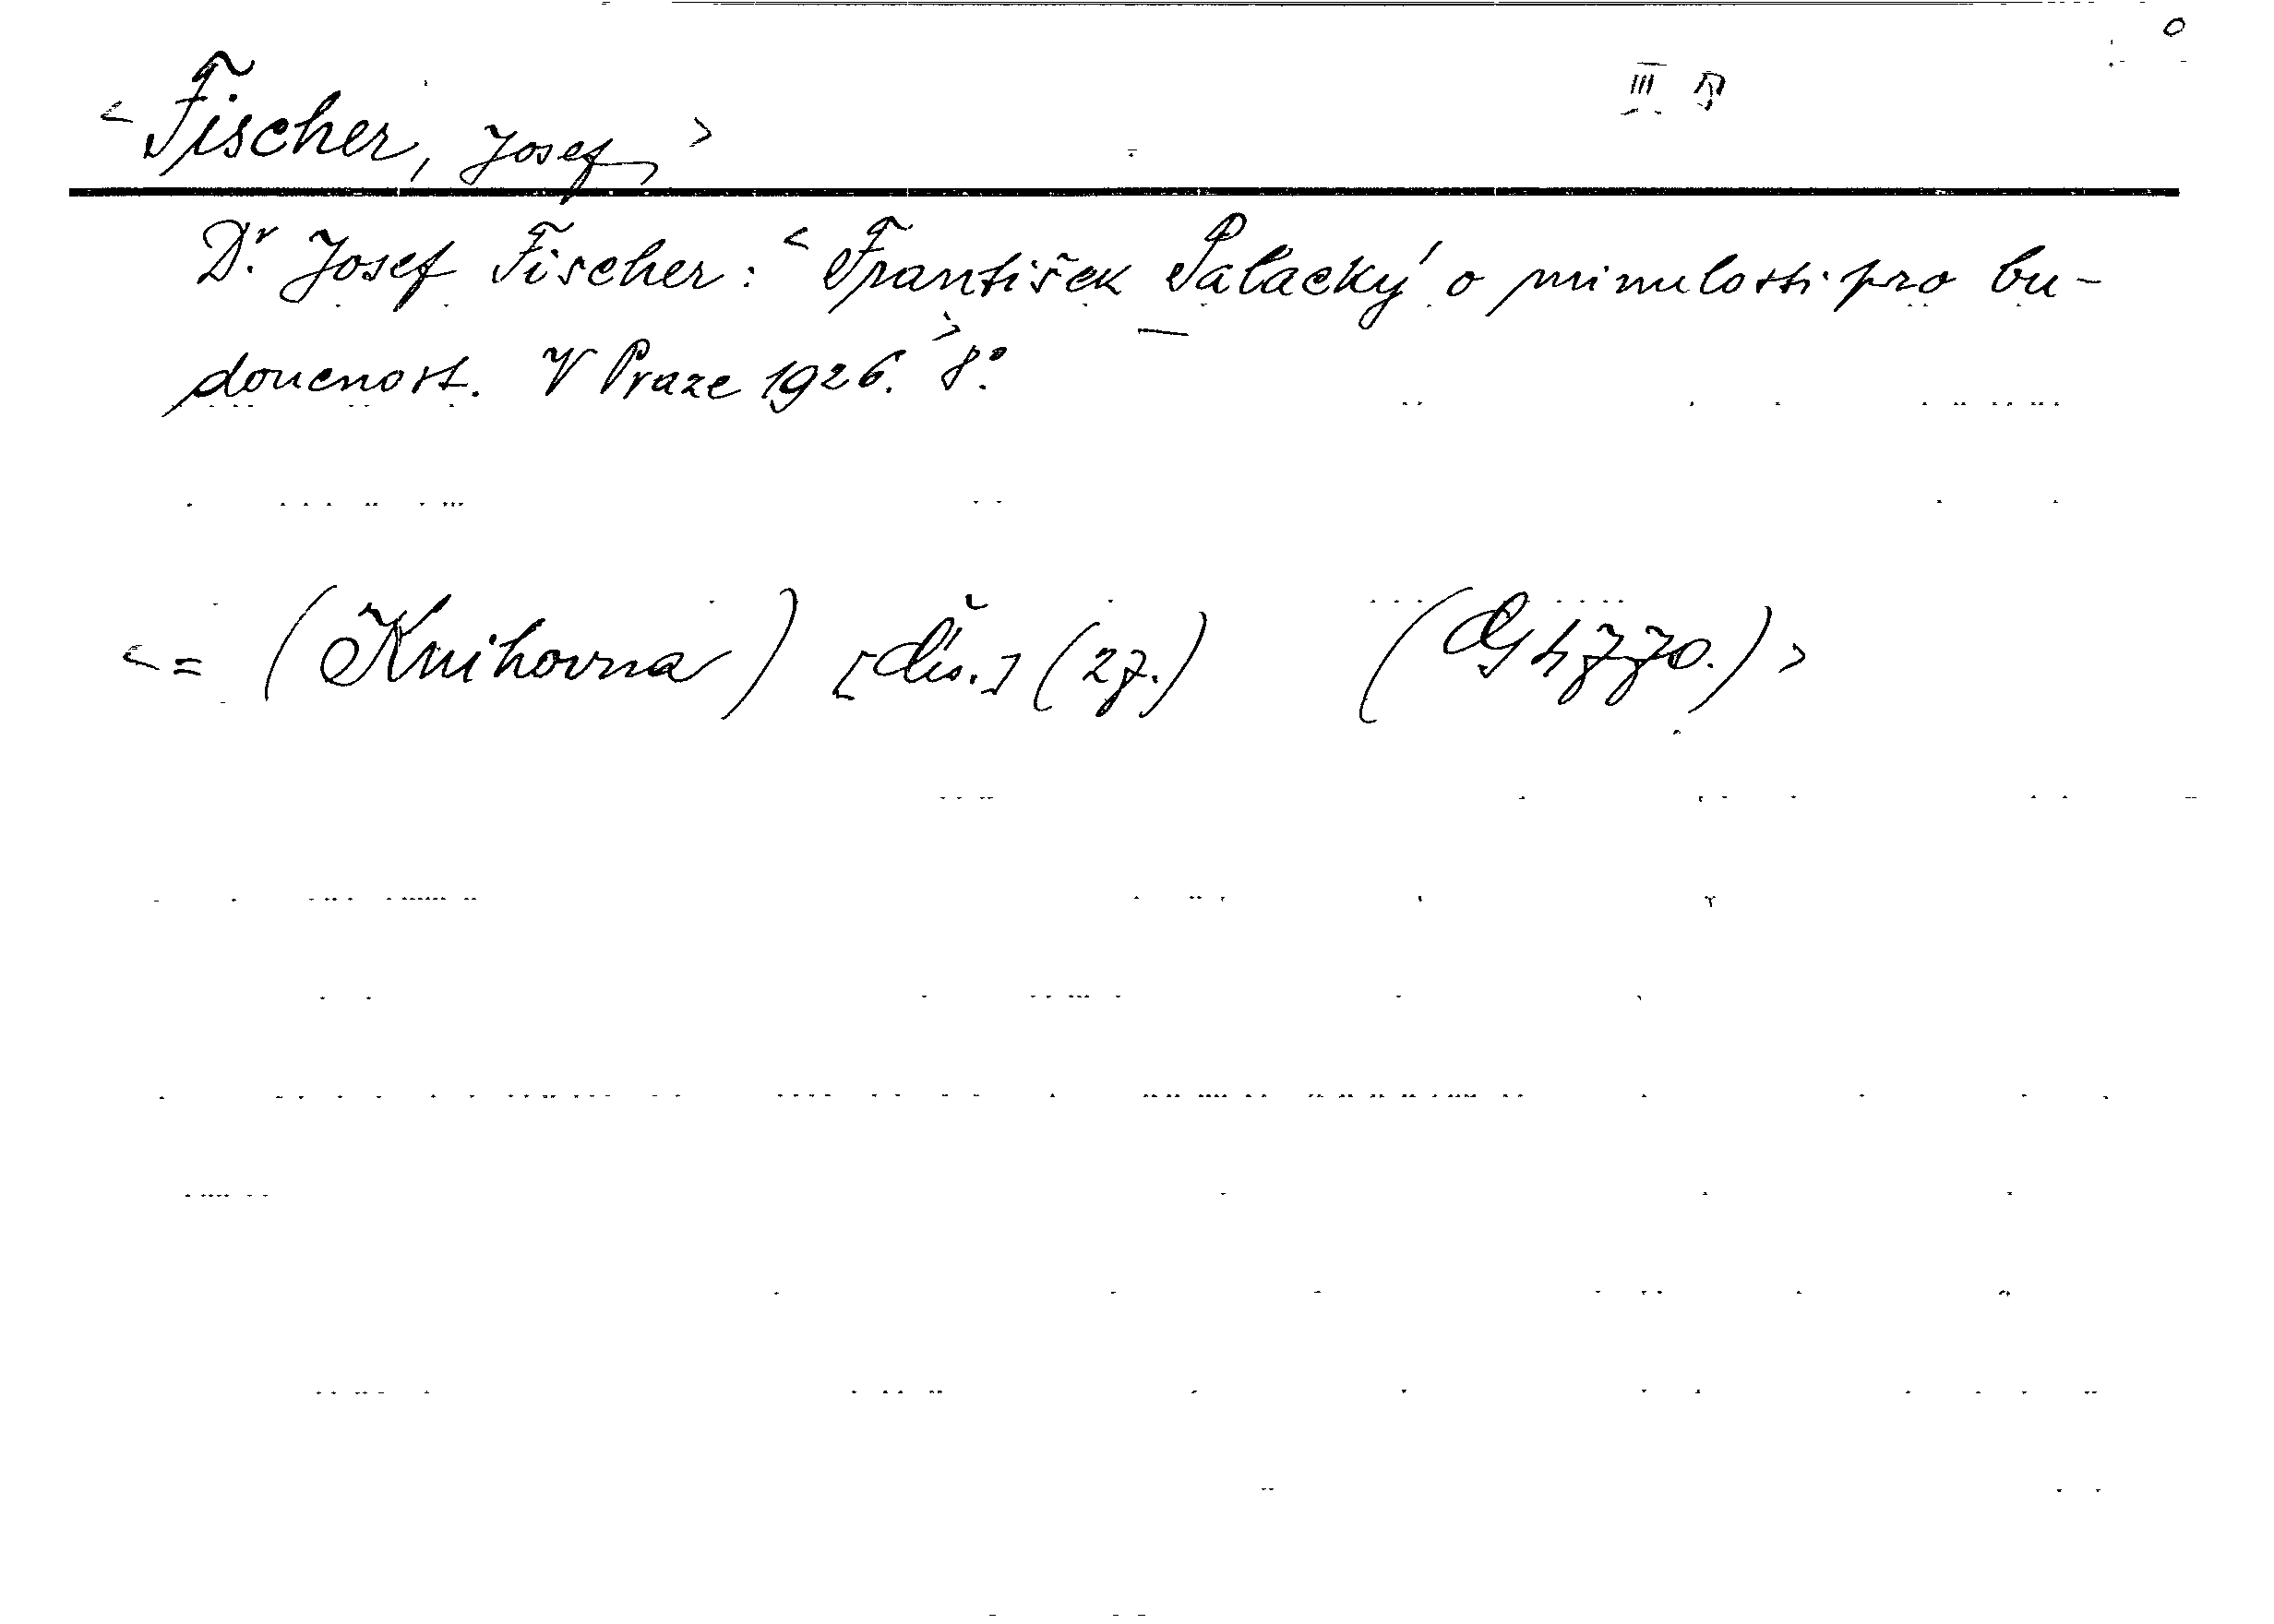 III
< Fischer, Josef, >
Dr. Josef Fischer: < František Palacký o minulosti pro bu-
doucnost. V Praze 1926. > 8°.
< = (Knihovna) [čís.] (27.) (G 4770.) >